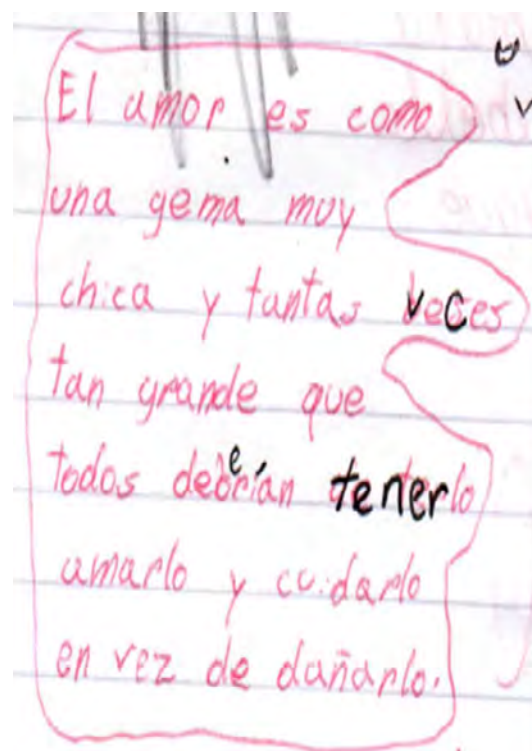 El amor es como
una gema muy
chica y tantas veces
tan grande que
todos deberían tenerlo
amarlo y cuidarlo
en vez de dañarlo.